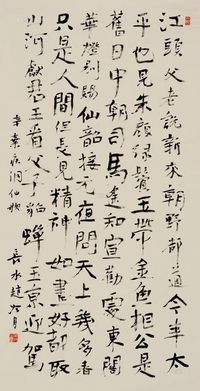 江頭父老說新來朝野都道今年太
平也見朱顏綠鬢玉帶金魚相公是
舊日中朝司馬遙知宣勸處東閣
華燈別賜仙韶接元夜問天上幾多春
只是人間但長見精神如畫好都取
山河獻君王看父子貂蟬玉京迎駕
辛棄疾洞仙歌
長水趙冷月